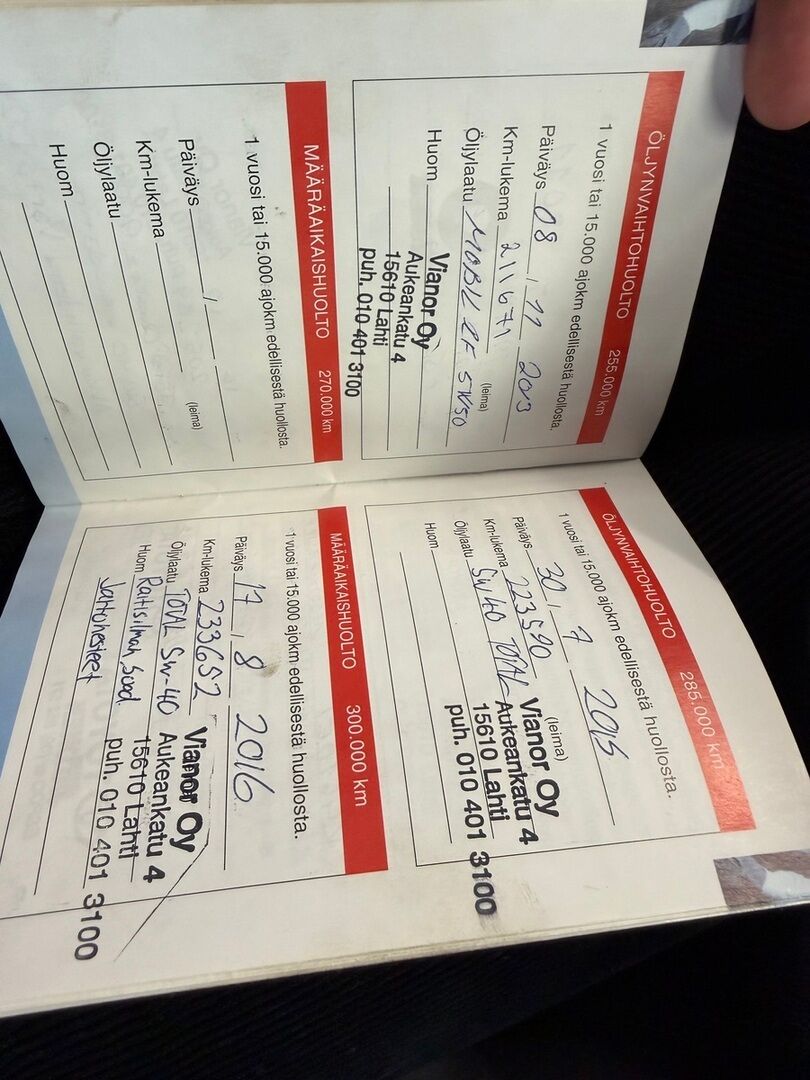 ÖLJYNVAIHTOHUOLTO 255.000 km
1 vuosi tai 15.000 ajokm edellisestä huollosta.
Päiväys 08 / 11 2013
Km-lukema 211671
Öljylaatu 5W50 (leima)
Huom
Vianor Oy
Aukeankatu 4
15610 Lahti
puh. 010 401 3100
MÄÄRÄAIKAISHUOLTO 270.000 km
1 vuosi tai 15.000 ajokm edellisestä huollosta.
Päiväys / 
Km-lukema
Öljylaatu (leima)
Huom
ÖLJYNVAIHTOHUOLTO 285.000 km
1 vuosi tai 15.000 ajokm edellisestä huollosta.
Päiväys 30 / 7 2015
Km-lukema 223590 (leima)
Öljylaatu 5W40 TOTAL
Huom
Vianor Oy
Aukeankatu 4
15610 Lahti
puh. 010 401 3100
MÄÄRÄAIKAISHUOLTO 300.000 km
1 vuosi tai 15.000 ajokm edellisestä huollosta.
Päiväys 17 / 8 2016
Km-lukema 233652
Öljylaatu TOTAL 5w-40
Huom Raitisilman suod.
Jarrunesteet
Vianor Oy
Aukeankatu 4
15610 Lahti
puh. 010 401 3100